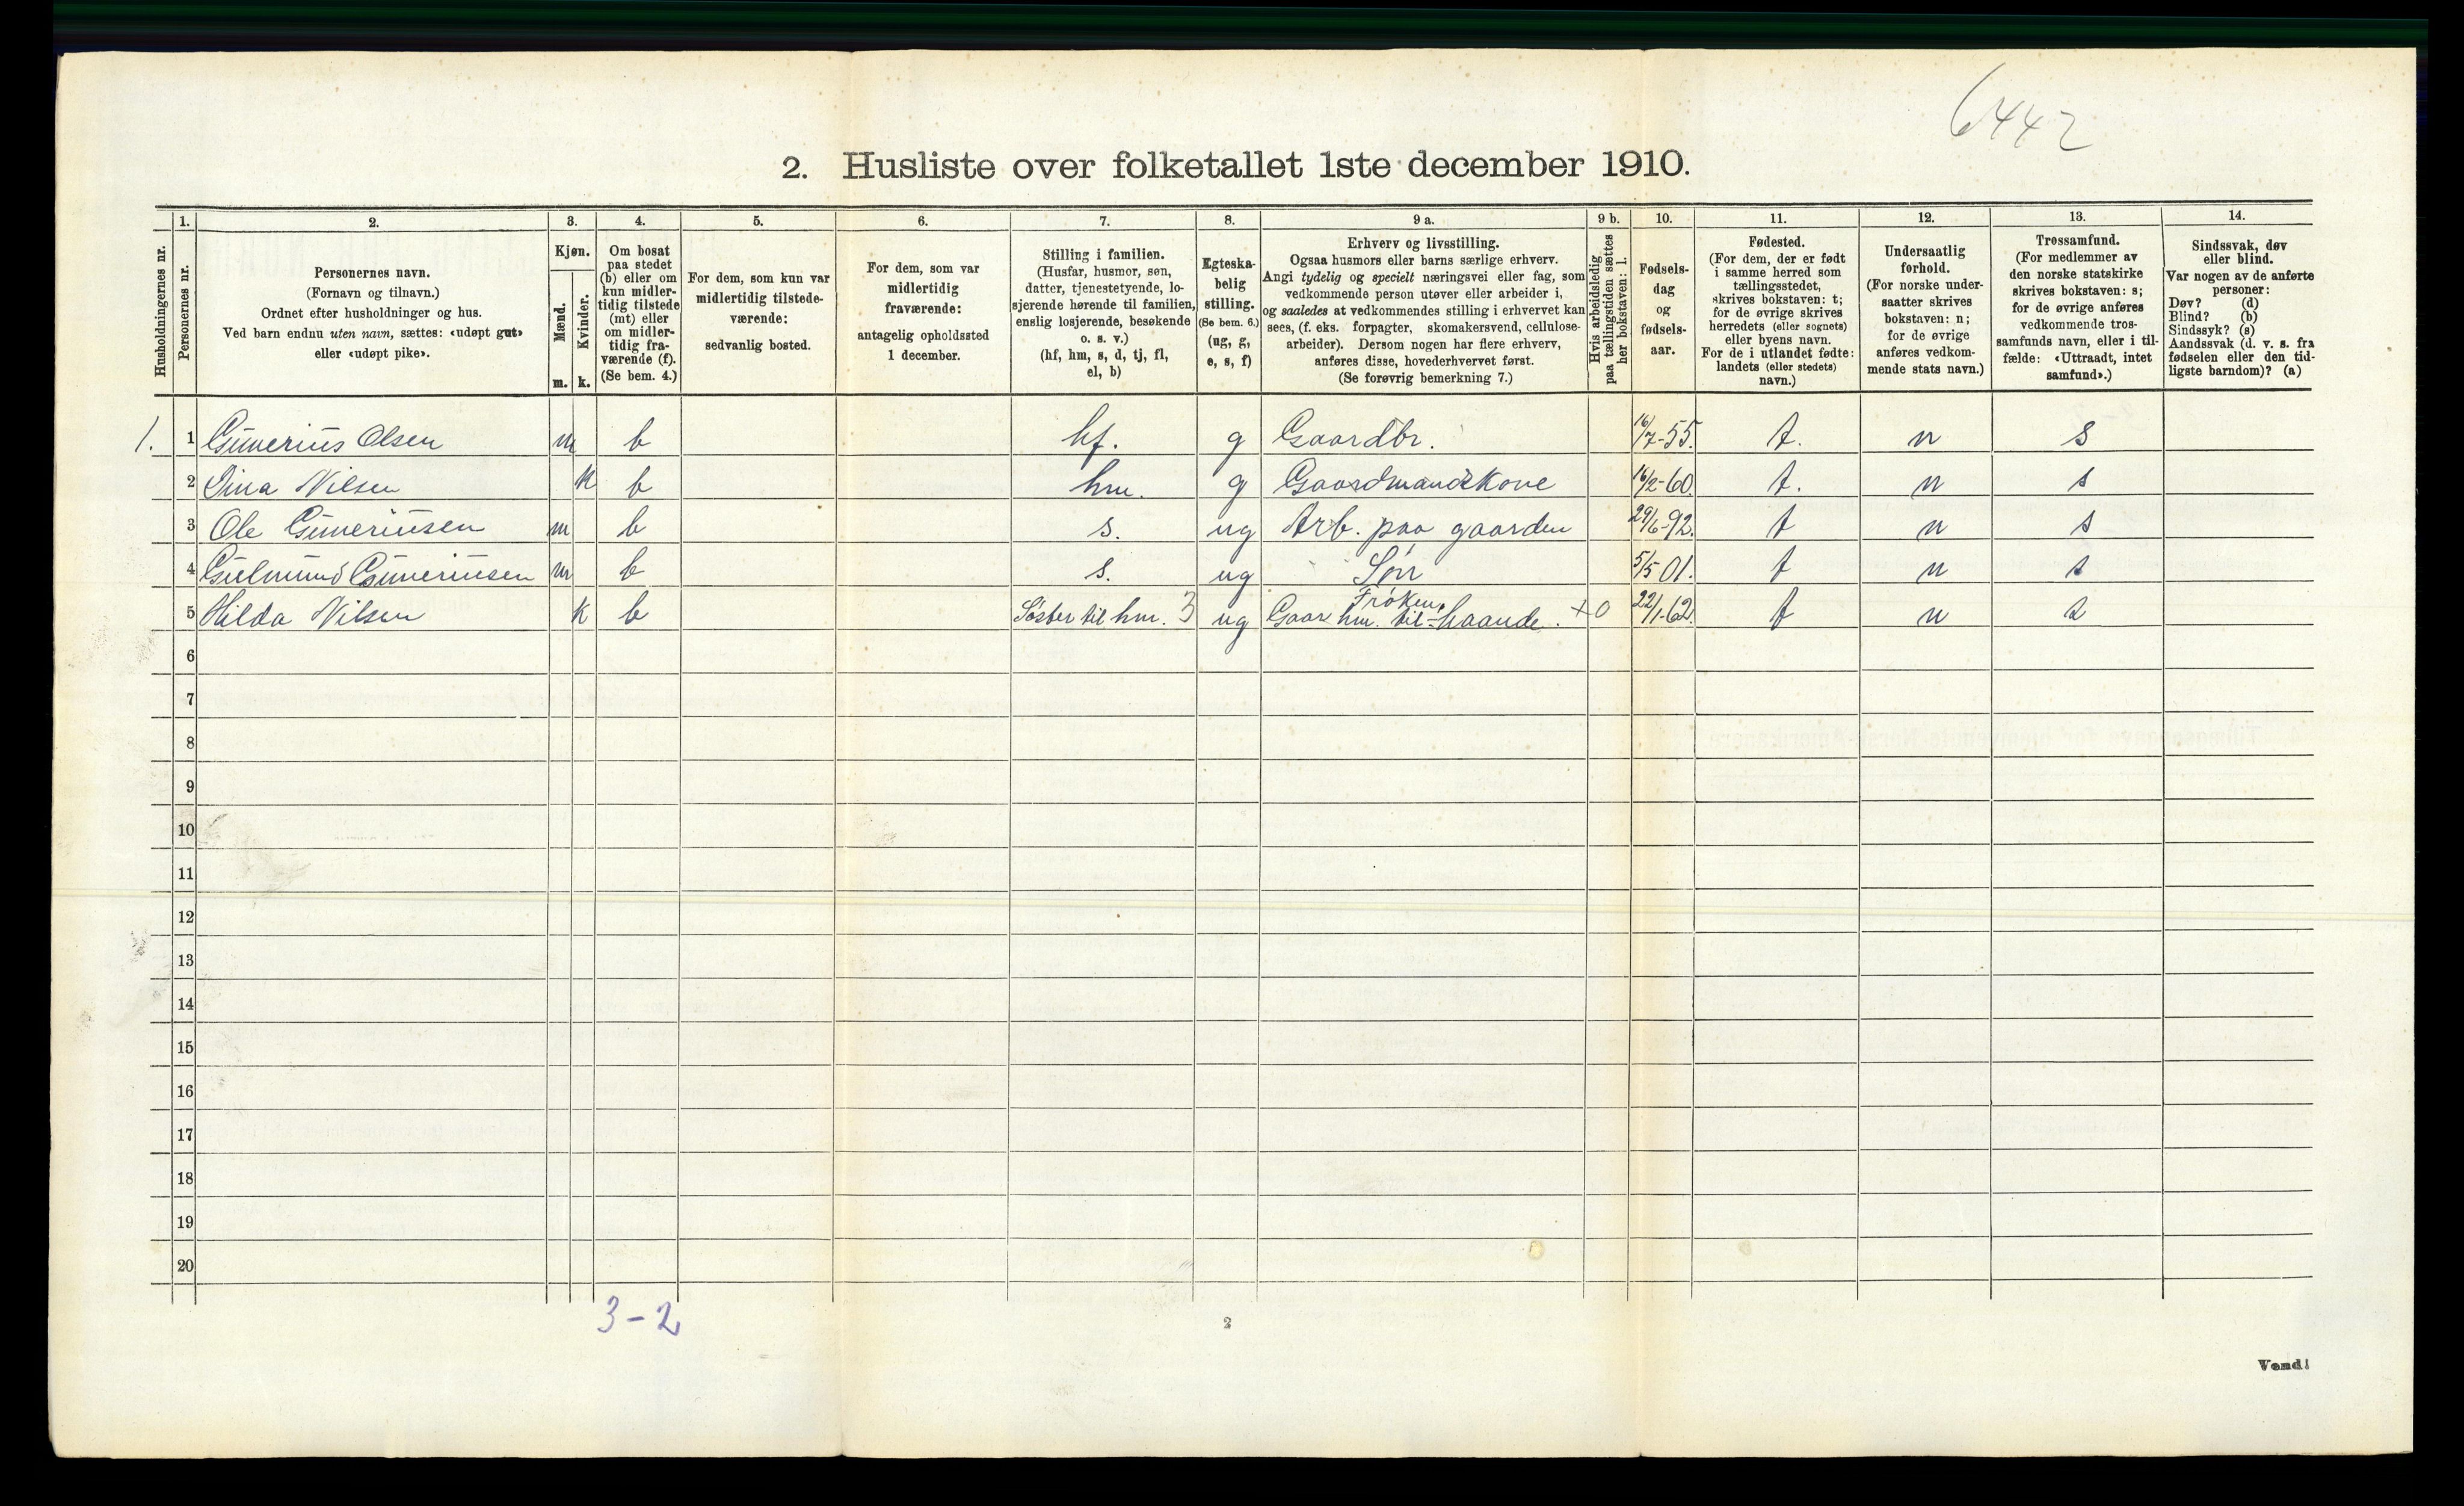 6442
2. Husliste over folketallet 1ste december 1910.
Husholdningernes nr.
1.
Personernes nr.
2.
Personernes navn.
(Fornavn og tilnavn.)
Ordnet efter husholdninger og hus.
Ved barn endnu uten navn, sættes: «udøpt gut»
eller «udøpt pike».
3.
Kjøn.
Mænd.
Kvinder.
m. k.
4.
Om bosat
paa stedet
(b) eller om
kun midler-
tidig tilstede
(mt) eller
om midler-
tidig fra-
værende (f).
(Se bem. 4.)
5.
For dem, som kun var
midlertidig tilstede-
værende:
sedvanlig bosted.
6.
For dem, som var
midlertidig
fraværende:
antagelig opholdssted
1 december.
7.
Stilling i familien.
(Husfar, husmor, søn,
datter, tjenestetyende, lo-
sjerende hørende til familien,
enslig losjerende, besøkende
o. s. v.)
(hf, hm, s, d, tj, fl,
el, b)
8.
Egteska-
belig
stilling.
(Se bem. 6.)
(ug, g,
e, s, f)
9 a.
Erhverv og livsstilling.
Ogsaa husmors eller barns særlige erhverv.
Angi tydelig og specielt næringsvei eller fag, som
vedkommende person utøver eller arbeider i,
og saaledes at vedkommendes stilling i erhvervet kan
sees, (f. eks. forpagter, skomakersvend, cellulose-
arbeider). Dersom nogen har flere erhverv,
anføres disse, hovederhvervet først.
(Se forøvrig bemerkning 7.)
9 b.
Hvis arbeidsledig
paa tællingstiden sættes
her bokstaven: l.
10.
Fødsels-
dag
og
fødsels-
aar.
11.
Fødested.
(For dem, der er født
i samme herred som
tællingsstedet,
skrives bokstaven: t;
for de øvrige skrives
herredets (eller sognets)
eller byens navn.
For de i utlandet fødte:
landets (eller stedets)
navn.)
12.
Undersaatlig
forhold.
(For norske under-
saatter skrives
bokstaven: n;
for de øvrige
anføres vedkom-
mende stats navn.)
13.
Trossamfund.
(For medlemmer av
den norske statskirke
skrives bokstaven: s;
for de øvrige anføres
vedkommende tros-
samfunds navn, eller i til-
fælde: «Uttraadt, intet
samfund».)
14.
Sindssvak, døv
eller blind.
Var nogen av de anførte
personer:
Døv? (d)
Blind? (b)
Sindssyk? (s)
Aandssvak (d. v. s. fra
fødselen eller den tid-
ligste barndom)? (a)
1. 1 Gunerius Olsen m b hf. g Gaardbr. 16/7-55. t. n s
2 Lina Nilsen k b hm. g Gaardmandskone 16/2-60. t. n s
3 Ole Guneriusen m b s. ug Arb. paa gaarden 29/6-92. t n s
4 Gulmund Guneriusen m b s. ug Søn 5/5 01. t n s
Frøken,
5 Hilda Nilsen k b Søster til hm. 3 ug Gaar hm. til-haande. +0 22/1-62. t n s
6
7
8
9
10
11
12
13
14
15
16
17
18
19
20
3-2
2
Vend!